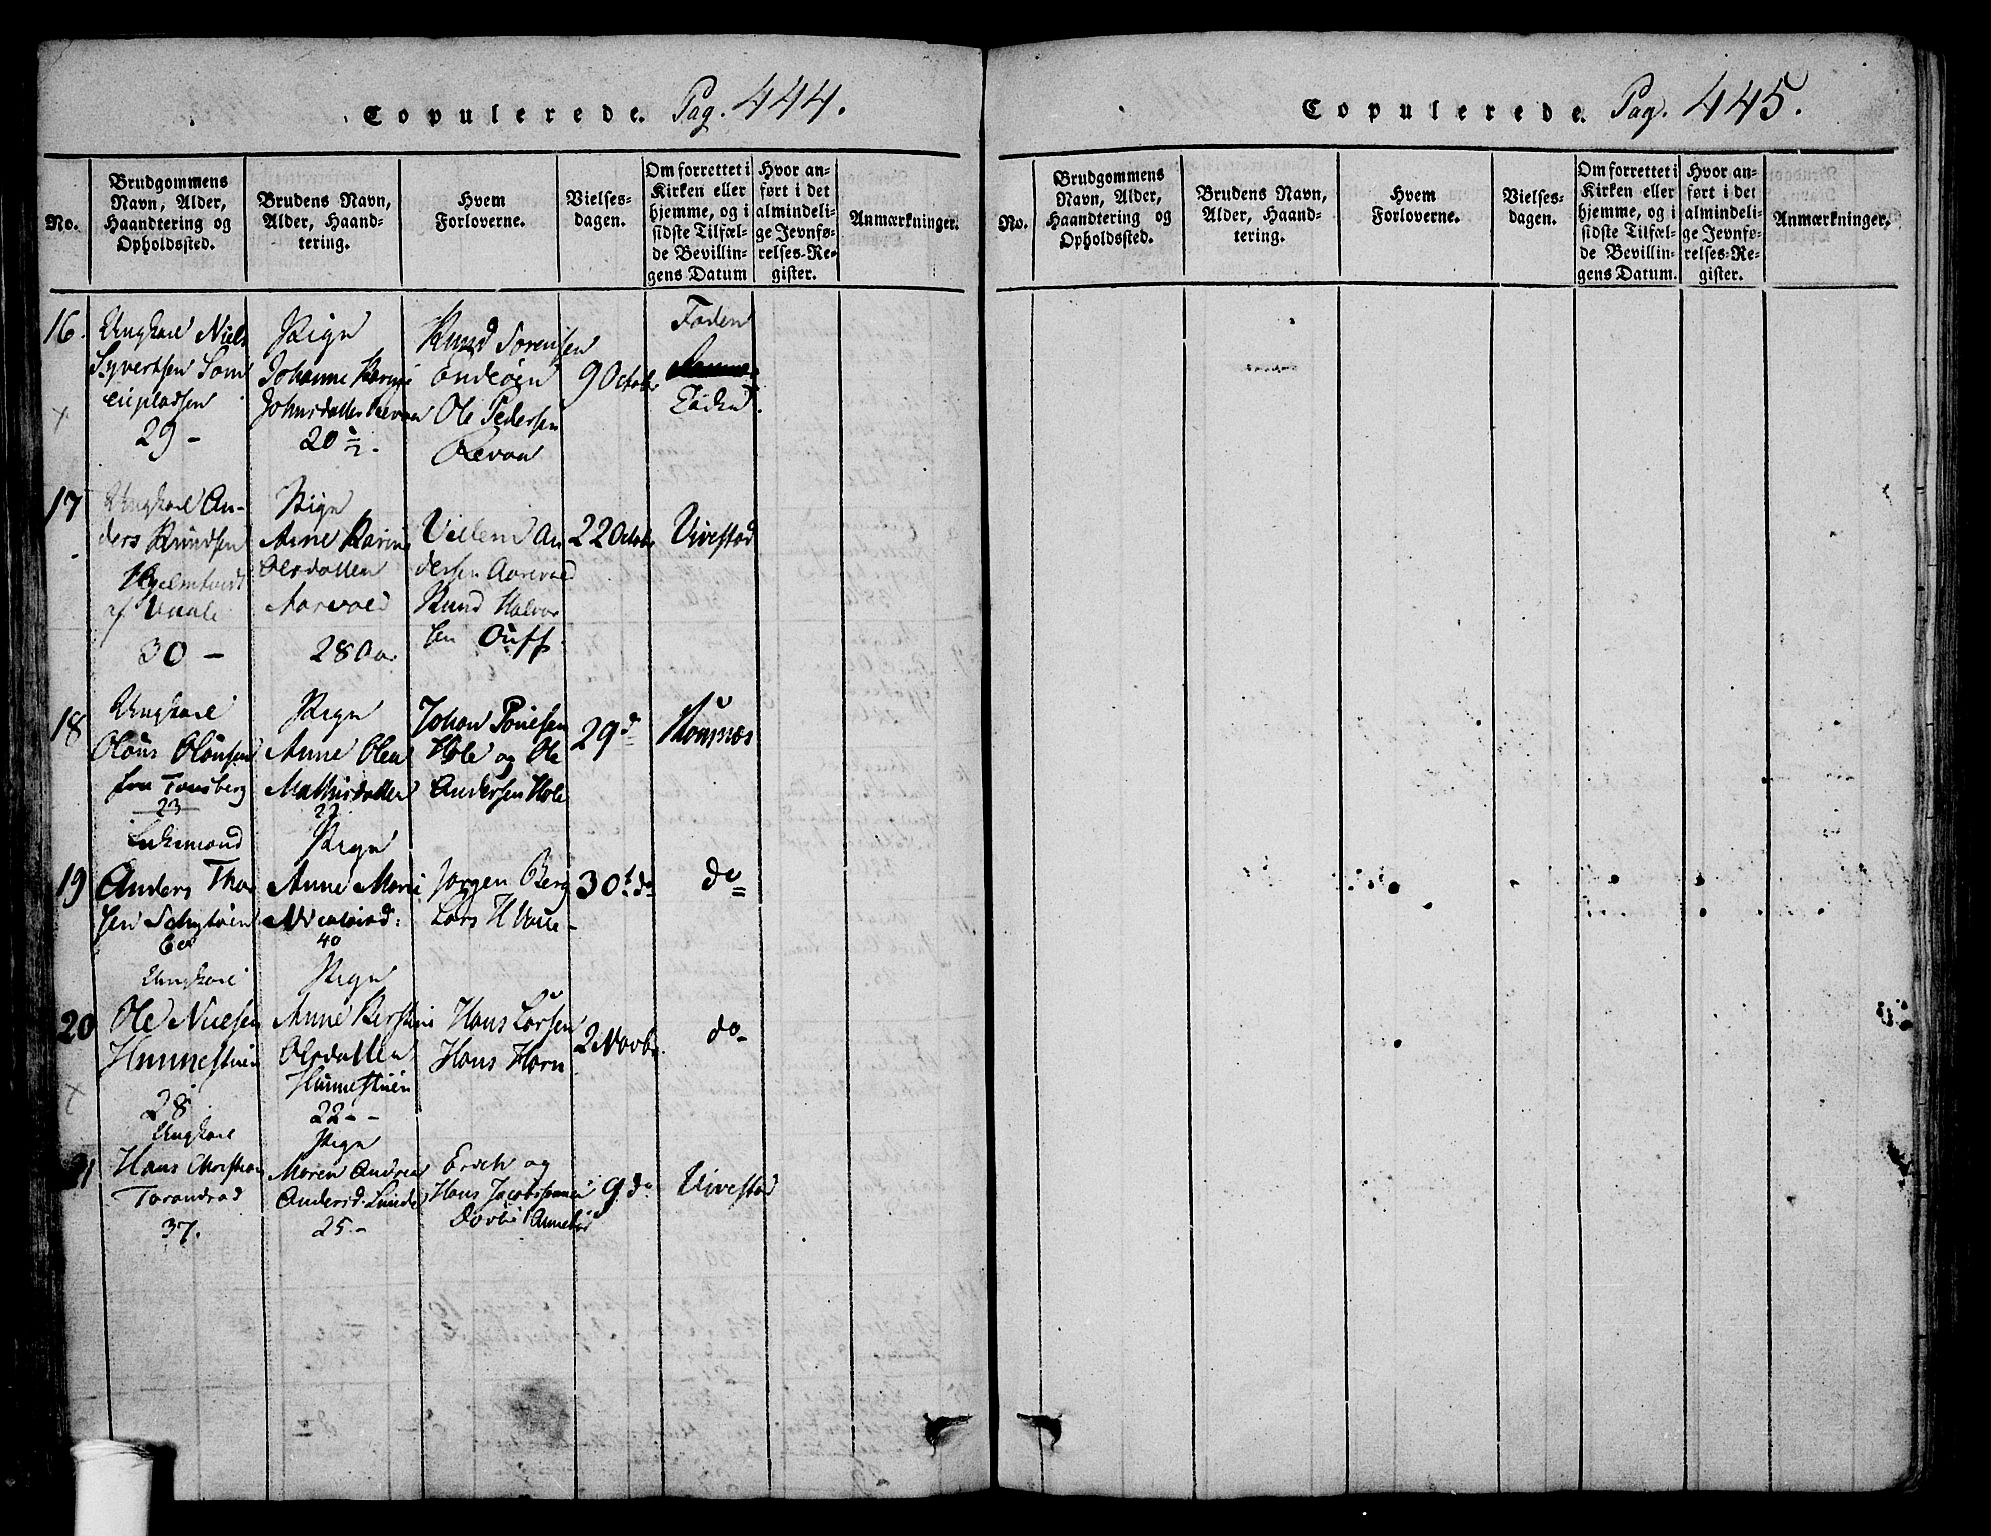 Copulerede. Pag. 444.
No.
Brudgommens
Navn, Alder,
Haandtering og
Opholdssted.
Brudens Navn,
Alder, Haand-
tering.
Hvem
Forloverne.
Vielses-
dagen.
Om forrettet i
Kirken eller
hjemme, og i
sidste Tilfæl-
de Bevillin-
gens Datum
Hvor an-
ført i det
almindeli-
ge Jevnfø-
relses-Re-
gister.
Anmærkninger.
16.
Ungkarl Niels
Syvertsen
eiepladsen
29 -
Pige
Johanne Karine
Johnsdatter Revaa
20 ½.
Knud Sorensen
Endsöen
Ole Pedersen
Revaa
9 Octobr
Foden
17
Ungkarl An-
ders Knudsen
af Vaale
30 -
Pige
Anne Karine
Olsdatter
Aarevold
28 Aar
Villem An
dersen Aarevold
Knud Halvor
sen Ouff.
22 Octobr
Vivestad
18
Ungkarl
Olaus Olausen
fra Tonsberg
23
Pige
Anne Olea
Mathisdatter
22
Johan Povelsen
Hole og Ole
Andersen Hole
29 d=
Ramnæs
19
Enkemand
Anders Thor
sen
60
Pige
Anne Marie
Nicolaisd:
40
Jorgen Berg
Lars H
30t. do
do=
20
Ungkarl
Ole Nielsen
Hunnestuen
28
Pige
Anne Kerstine
Olsdatter
Hunnestuen
22 - -
Hans Larsen
Hans Horn
2 Novbr.
do-
21
Ungkarl
Hans Christian
Torandrød
37.
Pige
Maren Andrea
Andersd. Lunde
25 -
Erich og
Hans Jacobssønner
9. do
Vivestad
Copulerede. Pag. 445.
No.
Brudgommens
Navn, Alder,
Haandtering og
Opholdssted.
Brudens Navn,
Alder, Haand-
tering.
Hvem
Forloverne.
Vielses-
dagen.
Om forrettet i
Kirken eller
hjemme, og i
sidste Tilfæl-
de Bevillin-
gens Datum.
Hvor an-
ført i det
almindeli-
ge Jevnfø-
relses-Re-
gister.
Anmærkninger.